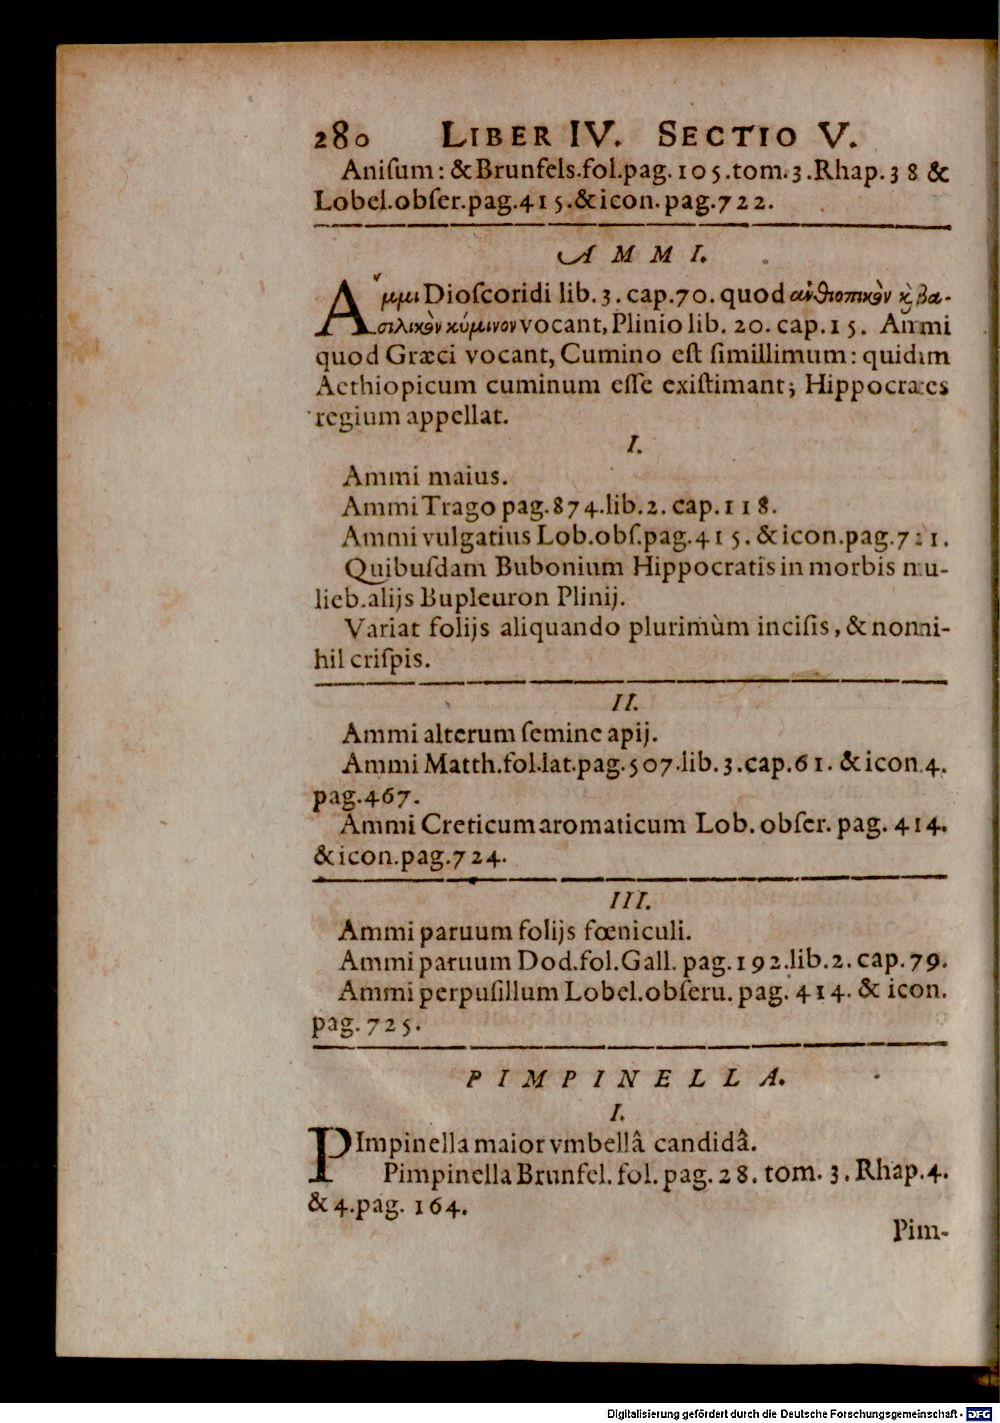 280 LIBER IV. SECTIO V.
Aniſum: & Brunfels.fol.pag.105.tom.3.Rhap.38 &
Lobel.obſer.pag.415.& icon.pag.722.
AMMI.
Ἄμμι Dioſcoridi lib.3.cap.70. quod αἰθιοπικὸν ϗ βα-
σιλικὸν κύμινον vocant, Plinio lib. 20. cap.15. Ammi
quod Græci vocant, Cumino eſt ſimillimum: quidam
Aethiopicum cuminum eſſe exiſtimant; Hippocrates
regium appellat.
I.
Ammi maius.
Ammi Trago pag.874.lib.2. cap.118.
Ammi vulgatius Lob.obſ.pag.415. & icon.pag.721.
Quibuſdam Bubonium Hippocratis in morbis mu-
lieb.alijs Bupleuron Plinij.
Variat folijs aliquando plurimùm inciſis, & nonni-
hil criſpis.
II.
Ammi alterum ſemine apij.
Ammi Matth.fol.lat.pag.507.lib.3.cap.61. & icon.4.
pag.467.
Ammi Creticum aromaticum Lob. obſer. pag. 414.
& icon.pag.724.
III.
Ammi paruum folijs fœniculi.
Ammi paruum Dod.fol.Gall. pag.192.lib.2. cap.79.
Ammi perpuſillum Lobel.obſeru. pag. 414. & icon.
pag.725.
PIMPINELLA.
I.
PImpinella maior vmbellâ candidâ.
Pimpinella Brunfel. fol. pag. 28. tom. 3. Rhap.4.
& 4.pag. 164.
Pim-
Digitalisierung gefördert durch die Deutsche Forschungsgemeinschaft - DFG